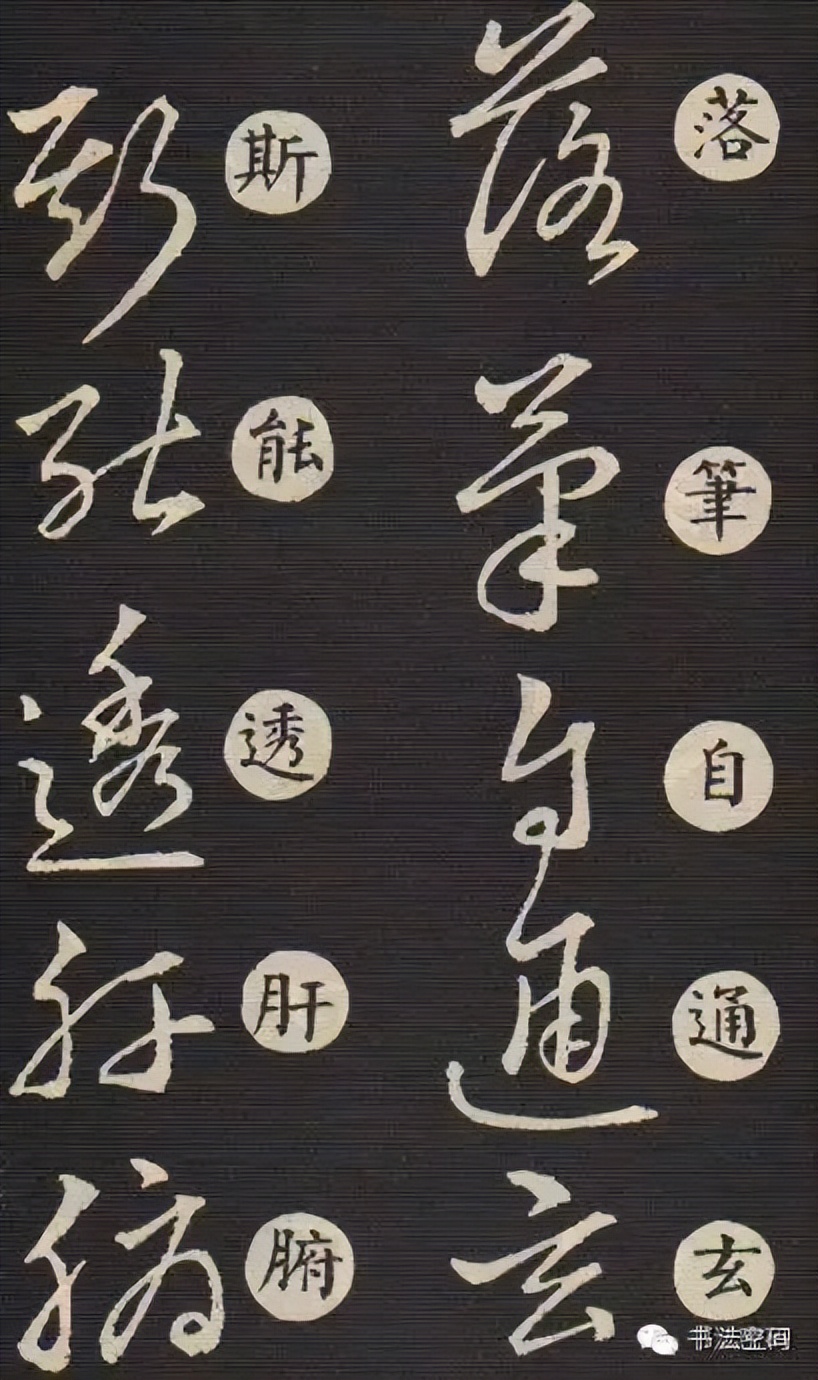 落筆自通玄
斯能透肝腑
书法空间